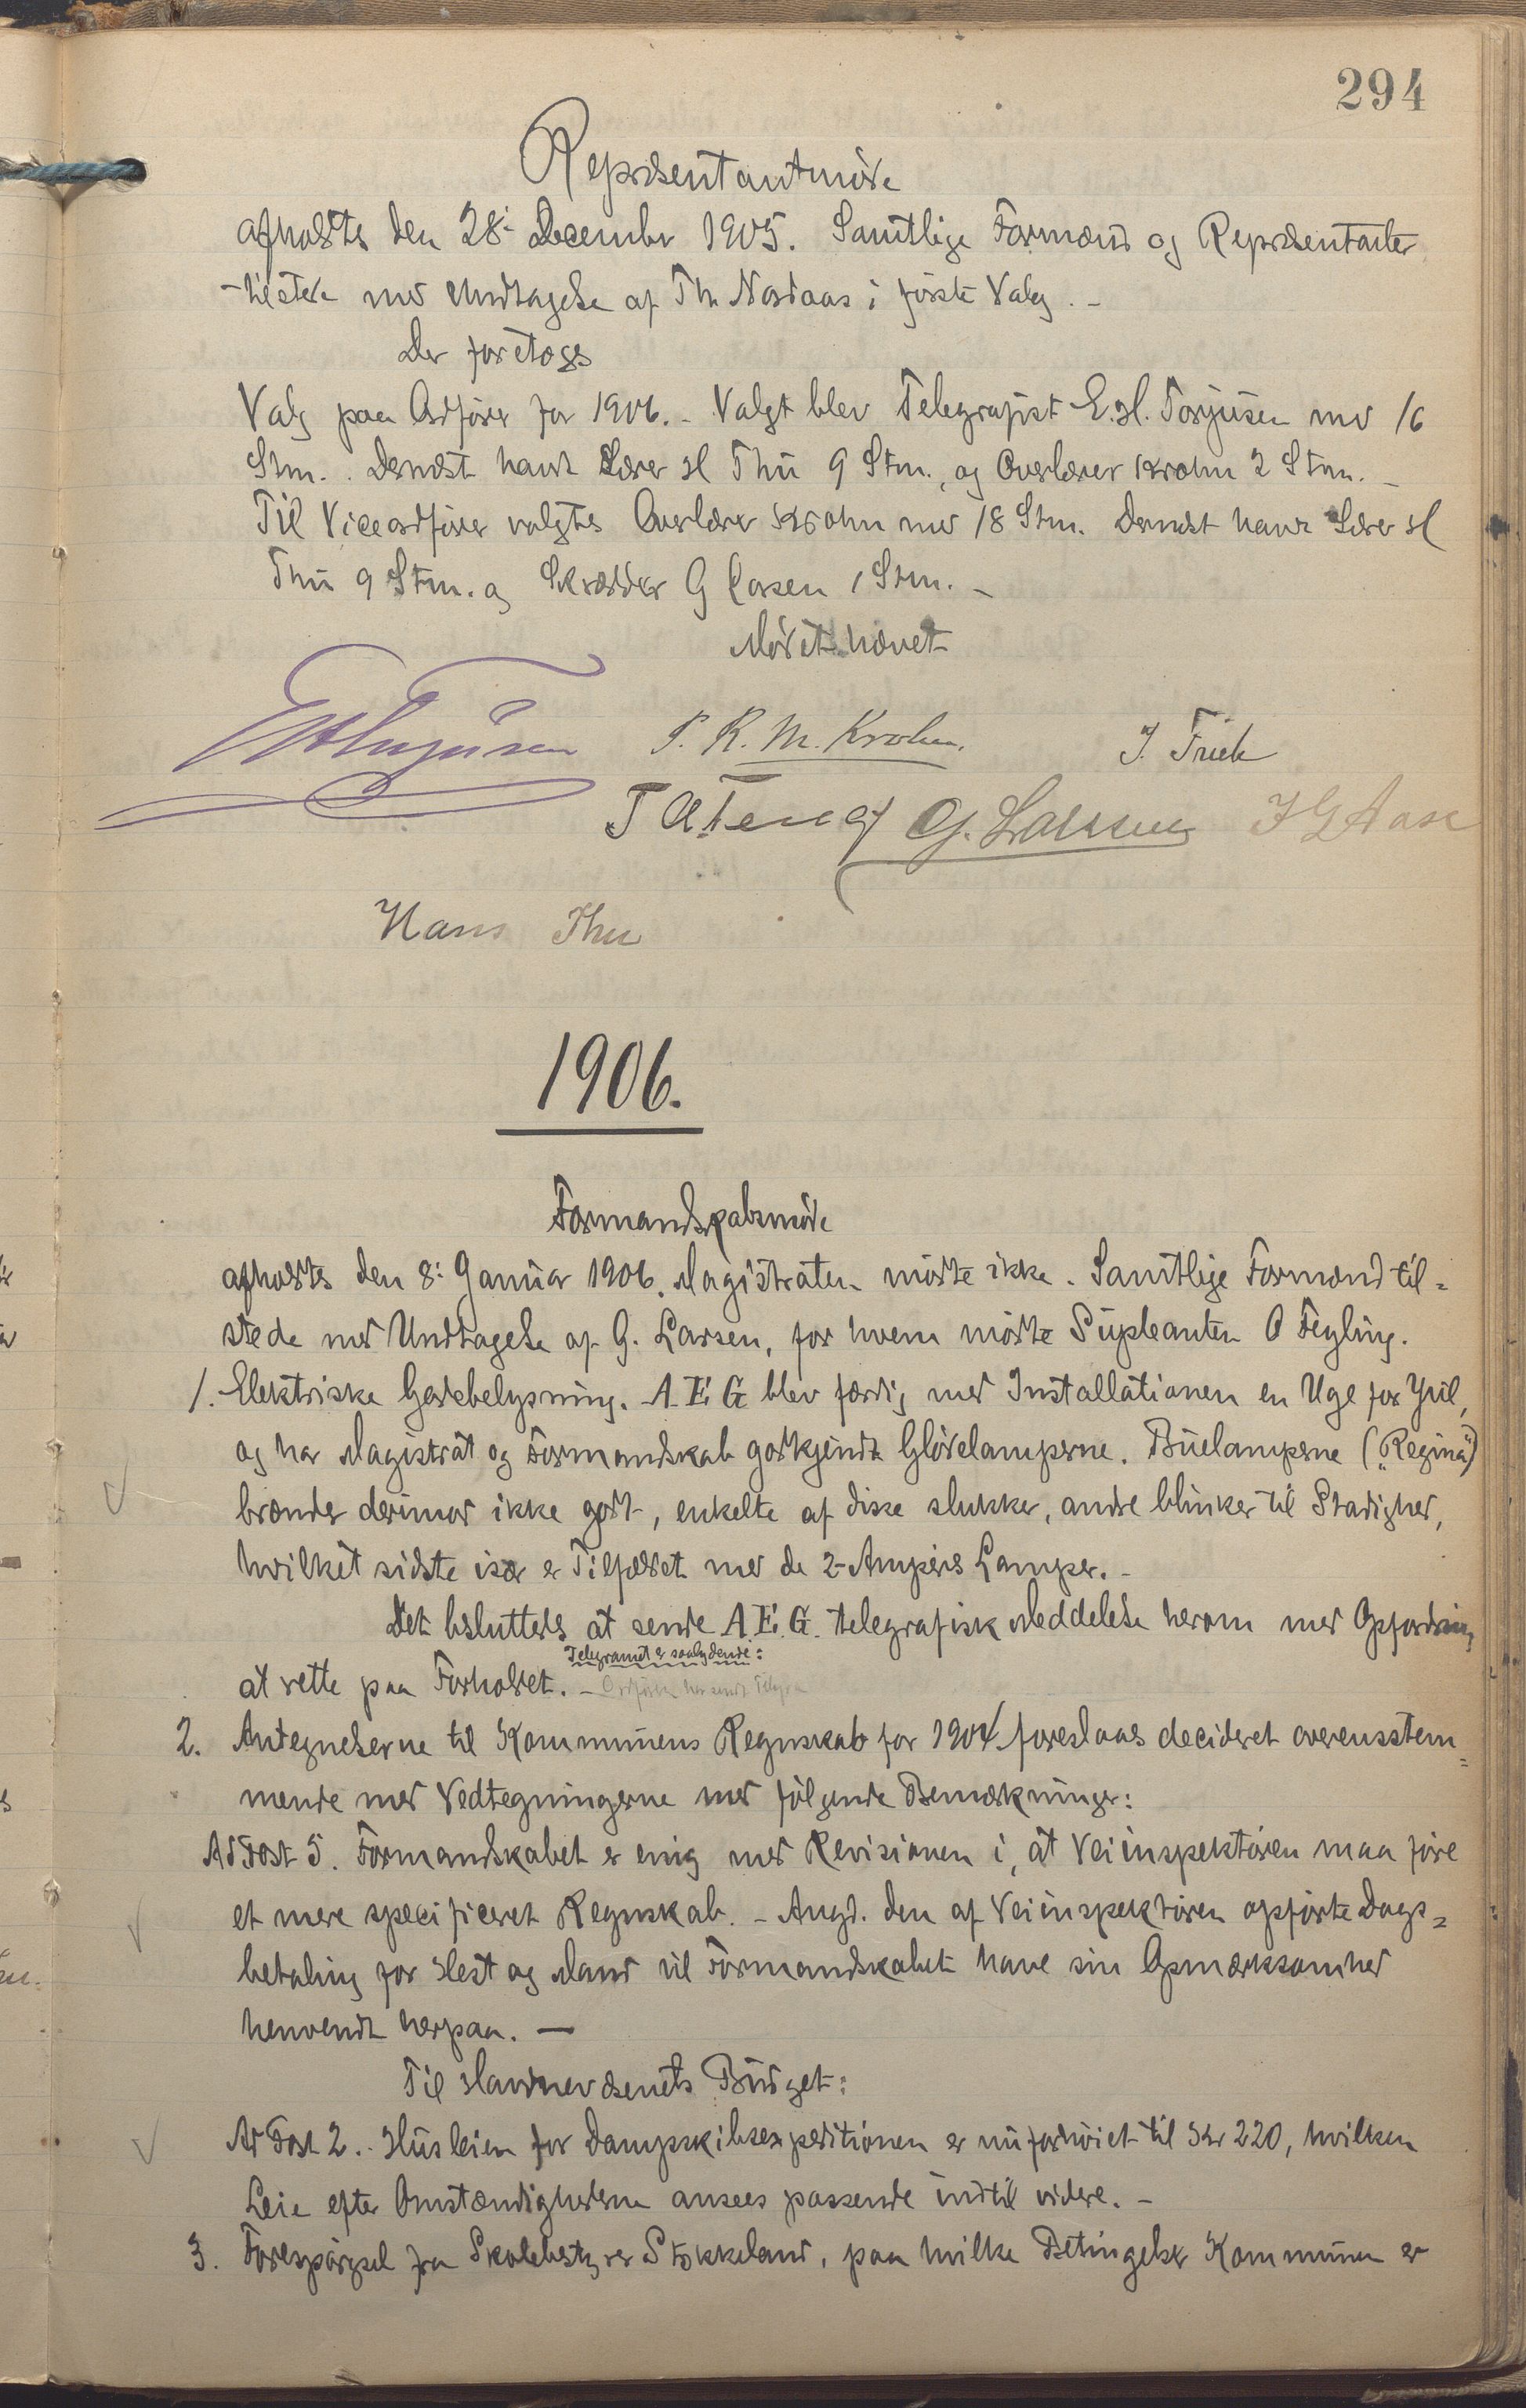 294
Repræsentantmøde
afholdtes den 28: December 1905. Samtlige Formænd og Repræsentanter
tilstede med Undtagelse af Th. Nordaas i første Valg. –
Der foretoges
Valg paa Ordfører for 1906. – Valgt blev Telegrafist E. H. Torjusen med 16
Stm. Dernæst havde Lærer H Thu 9 Stm., og Overlærer Krohn 2 Stm. –
Til Viceordfører valgtes Overlærer Krohn med 18 Stm. Dernæst havde Lærer H
Thu 9 Stm. og Skrædder G Larsen 1 Stm. –
Mødet hævet
EHTorjusen P. R. M. Krohn. J. Trieb
G. Larssen J G Aase
Hans Thu
1906.
Formandskabsmøde
afholdtes den 8: Januar 1906. Magistraten mødte ikke. Samtlige Formænd til=
stede med Undtagelse af G. Larsen, for hvem mødte Supleanten O Feyling.
1. Elektriske Gadebelysning. A E G blev færdig med Installationen en Uge før Jul,
og har Magistrat og Formandskab godkjendt Glødelamperne. Buelamperne („Regina")
brænder derimod ikke godt, enkelte af disse slukker, andre blinker til Stadighed,
hvilket sidste især er Tilfældet med de 2-Ampéres Lamper. –
Det besluttedes at sende A. E. G. telegrafisk Meddelelse herom med Opfordring
Telegramet er saalydende:
at rette paa Forholdet. – Ordføren har sendt Telegra
2. Antegnelserne til Kommunens Regnskab for 1904 foreslaaes decideret overensstem=
mende med Vedtegningerne med følgende Bemærkninger:
Ad Post 5. Formandskabet er enig med Revisionen i, at Veiinspektøren maa føre
et mere specificeret Regnskab. – Angd. den af Veiinspektøren opførte Dags=
betaling for Hest og Mand vil Formandskabet have sin Opmærksomhed
henvendt herpaa. –
Til Havnevæsenets Budget:
Ad Post 2. Husleien for Dampskibsexpeditionen er nu forhøiet til Kr 220, hvilken
Leie efter Omstændighederne ansees passende indtil videre. –
3. Forespørgsel fra Skolebestyrer Stokkeland, paa hvilke Betingelser Kommunen er